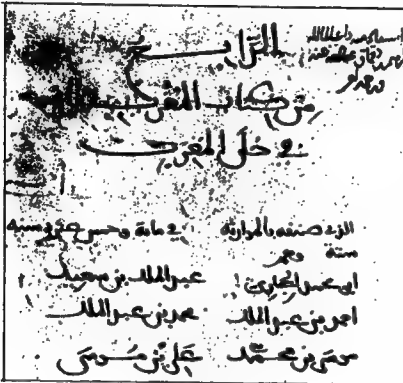 الرابع
من كتاب المغرب
في حلى المغرب
الذي صنفه بالموارثة في ماية وخمس عشرة سنة
ستة وهم
ابو محمد الحجاري عبد الملك بن سعيد
احمد بن عبد الملك محمد بن عبد الملك
موسى بن محمد علي بن موسى